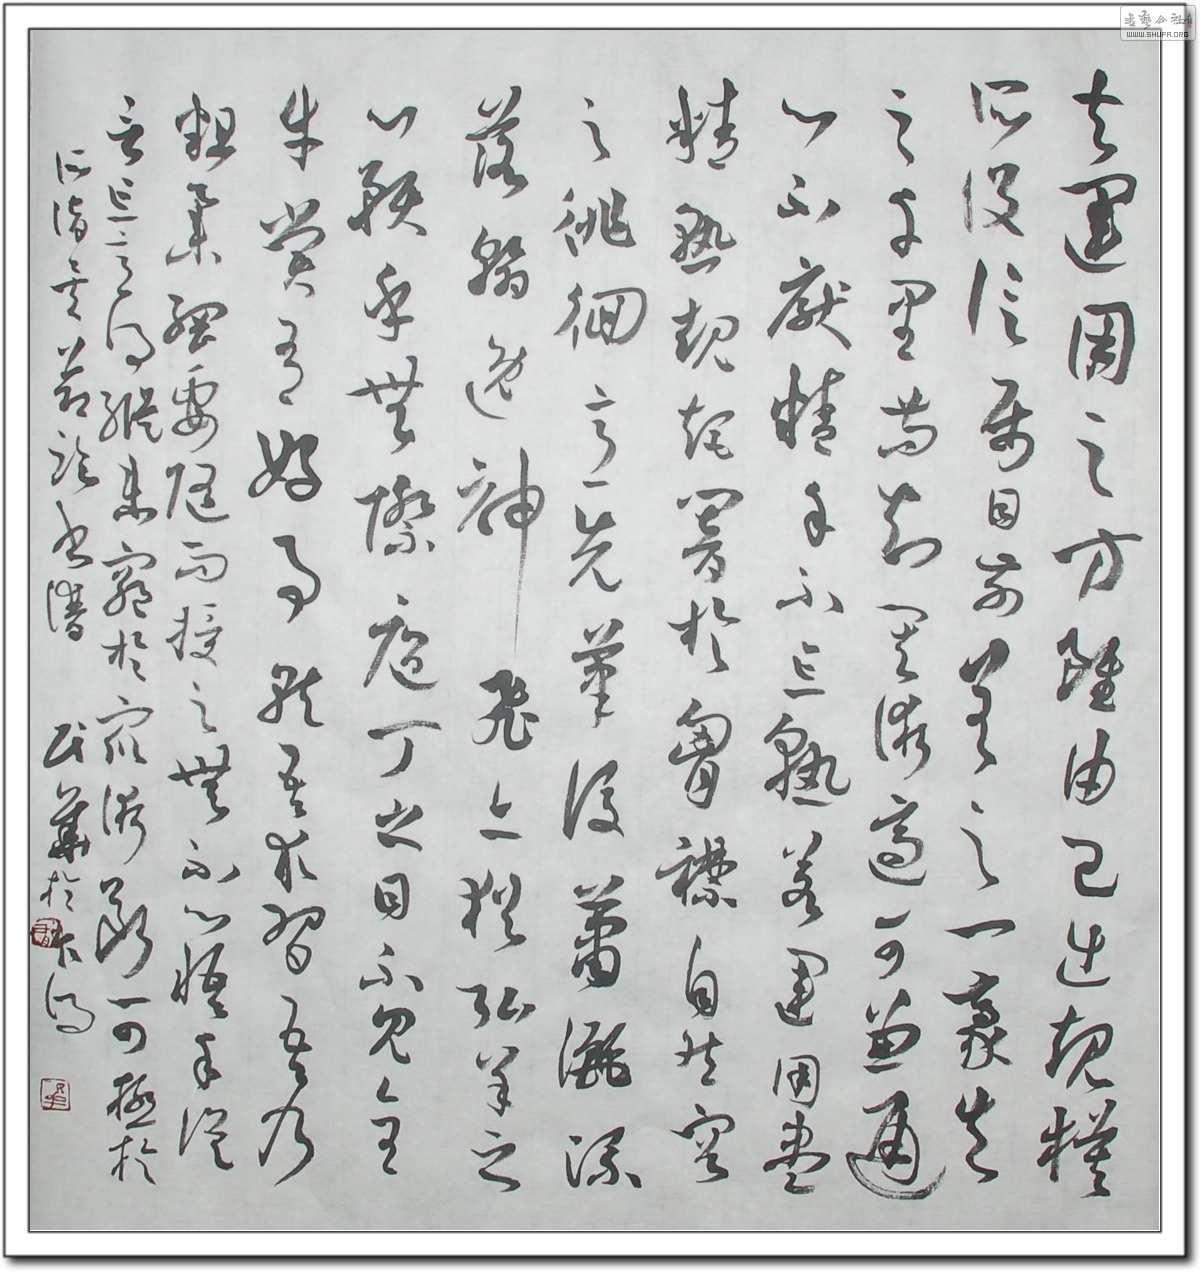 夫運用之方雖由己出規模
所設信屬目前差之一豪失
之千里苟知其術適可兼通
心不厭精手不忘熟若運用盡
精熟規矩闇於胸襟自然容
之徘徊意先筆後蕭灑流
落翰逸神飛亦猶弘羊之
心預乎無際庖丁之目不見全
牛嘗有好事就吾求習吾乃
粗舉綱要隨而授之無不心悟手從
言忘意得縱未窮於眾術斷可極於
所詣矣
書譜
書藝公社
WWW.SHUFA.ORG